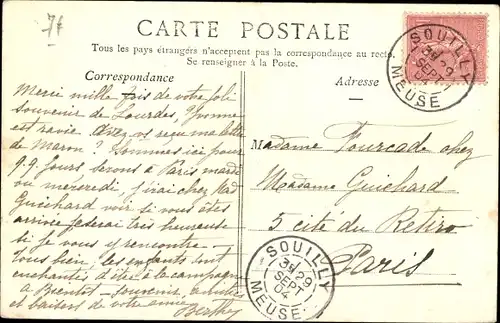 7f
CARTE POSTALE
Tous les pays étrangers n'acceptent pas la correspondance au recto.
Se renseigner à la Poste.
Correspondance
Adresse
Merci mille fois de votre joli
Souvenir de Lourdes, Yvonne
est ravie. Avez vs reçu ma lettre
de Maron? Sommes ici pour
9.9. jours serons à Paris mardi
ou mercredi, j'irai chez Mad
Guichard voir si vous êtes
arrivée je serai très heureuse
si je vous y rencontre
Tous bien, les enfants sont
enchantés d'être à la campagne
à Bientot. Souvenir
et baisers de votre amie
Berthe
Madame Fourcade chez
Madame Guichard
5 cité du Retiro
Paris
SOUILLY
29
SEPT
04
MEUSE
SOUILLY
29
SEPT
04
MEUSE